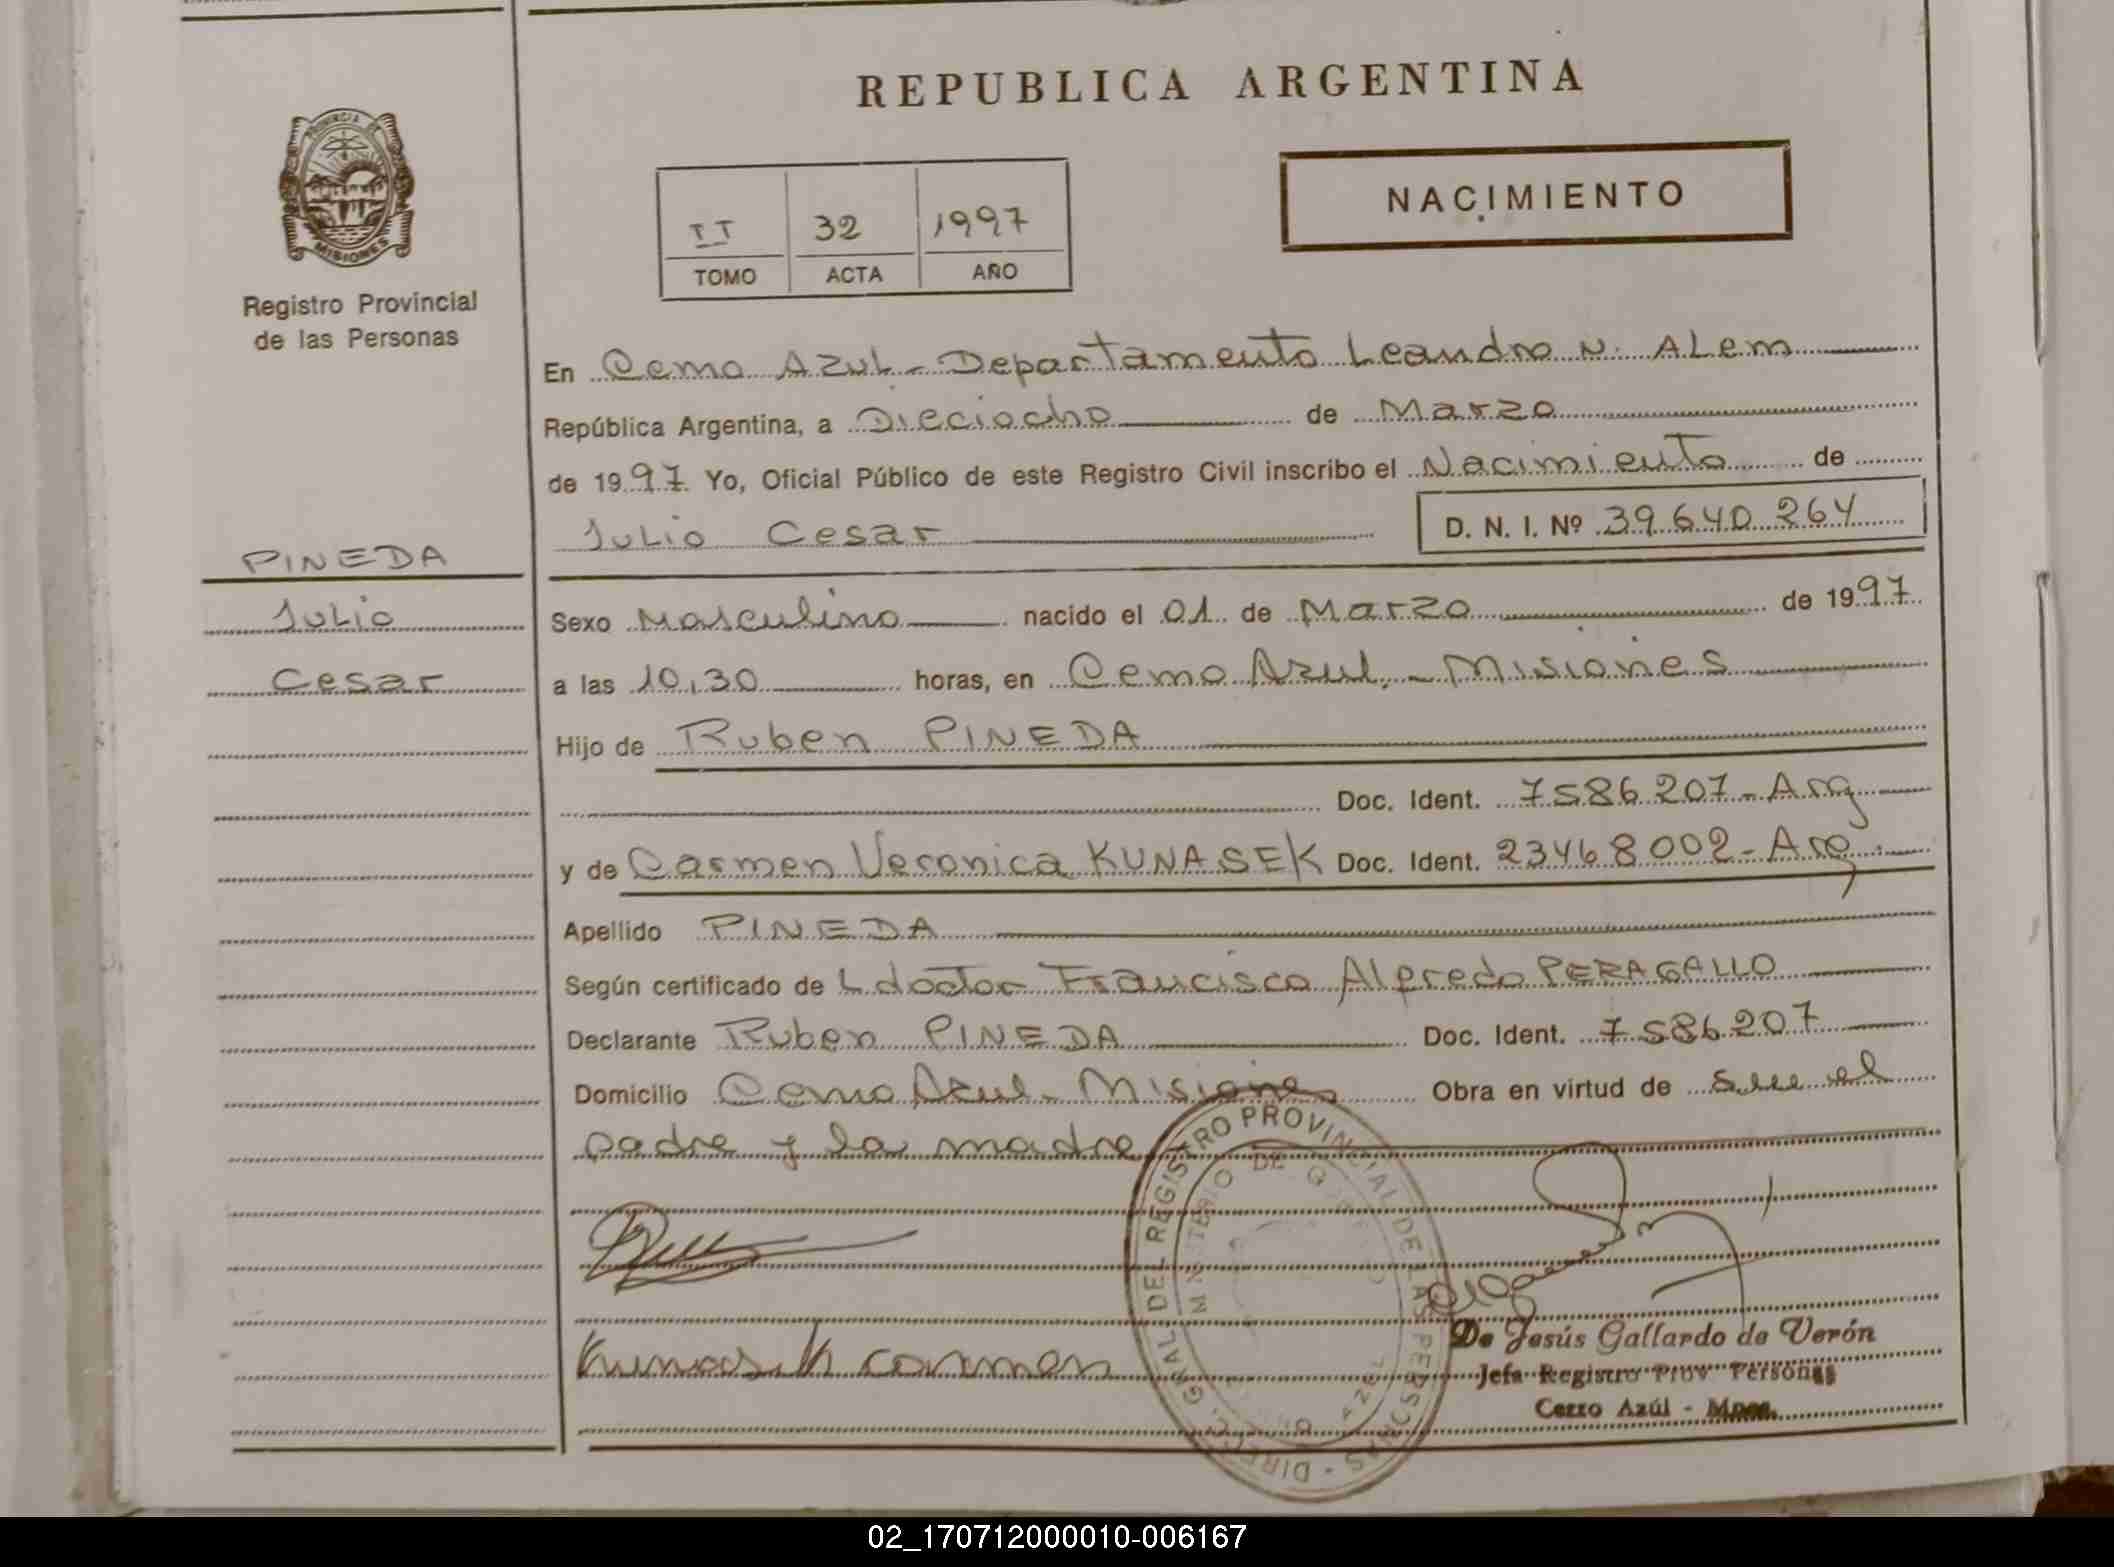 REPUBLICA ARGENTINA
PROVINCIA DE
MISIONES
Registro Provincial
de las Personas
NACIMIENTO
II 32 1997
TOMO ACTA AÑO
En Cerro Azul - Departamento Leandro N. Alem
República Argentina, a Dieciocho de Marzo
de 1997 Yo, Oficial Público de este Registro Civil inscribo el Nacimiento de
Julio Cesar D. N. I. Nº 39.640.264
PINEDA
Julio
Cesar
Sexo Masculino nacido el 01 de Marzo de 1997
a las 10,30 horas, en Cerro Azul - Misiones
Hijo de Ruben PINEDA
Doc. Ident. 7586207 - Arg
y de Carmen Veronica KUNASEK Doc. Ident. 23468002 - Arg.
Apellido PINEDA
Según certificado de L doctor Francisco Alfredo PERAGALLO
Declarante Ruben PINEDA Doc. Ident. 7586207
Domicilio Cerro Azul - Misiones Obra en virtud de ser el
padre y la madre
DIRECC. GRAL. DEL REGISTRO PROVINCIAL DE LAS PERSONAS
MINISTERIO DE
Kunasek Carmen
De Jesús Gallardo de Verón
Jefa Registro Prov Personas
Cerro Azúl - Mnes.
02_170712000010-006167